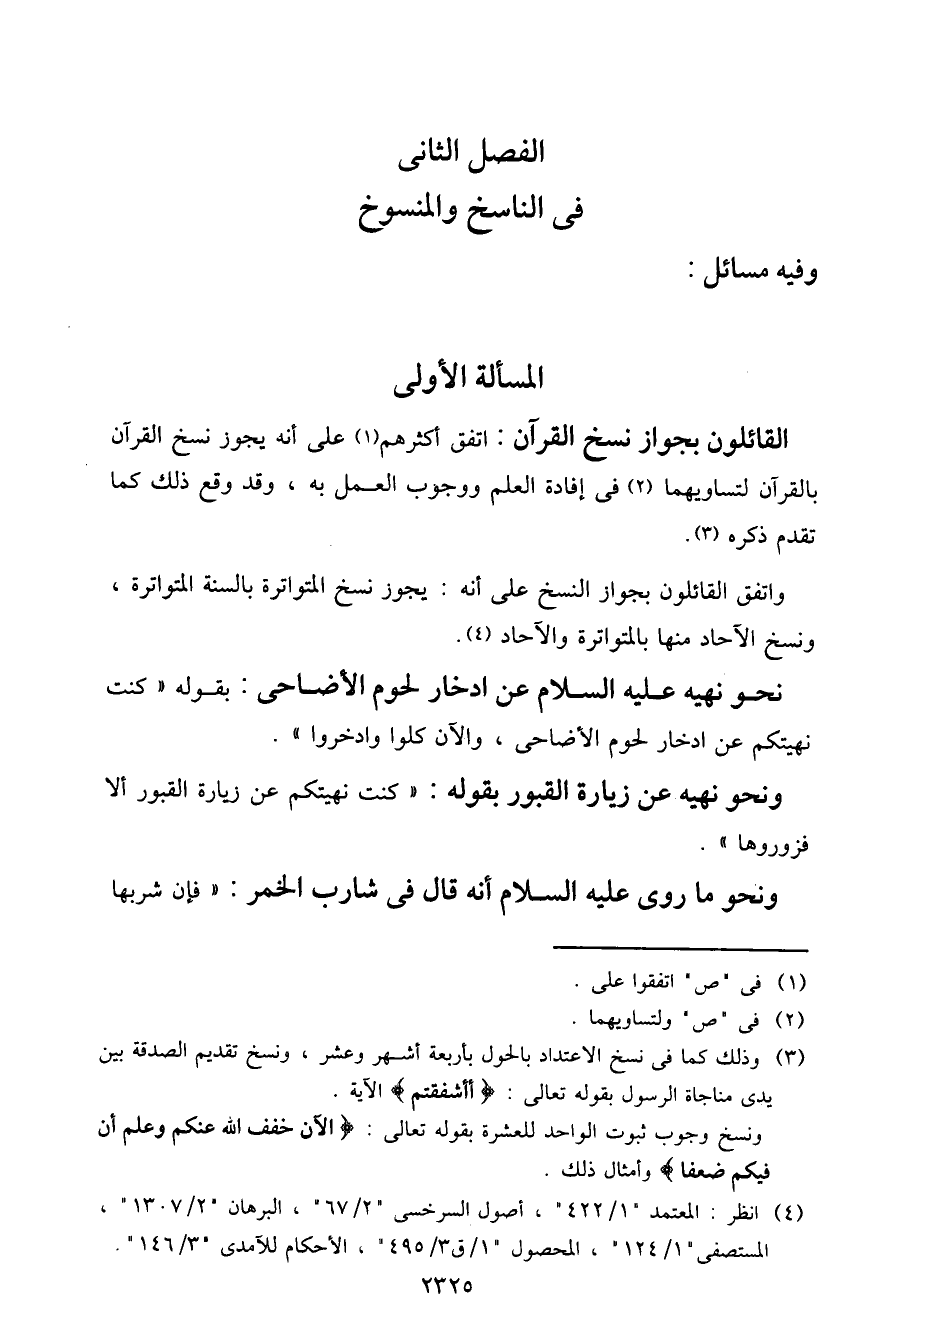 الفصل الثانى
فى الناسخ والمنسوخ
وفيه مسائل :
المسألة الأولى
القائلون بجواز نسخ القرآن : اتفق أكثرهم(١) على أنه يجوز نسخ القرآن
بالقرآن لتساويهما (٢) فى إفادة العلم ووجوب العـمل به ، وقد وقع ذلك كما
تقدم ذكره (٣).
واتفق القائلون بجواز النسخ على أنه : يجوز نسخ المتواترة بالسنة المتواترة ،
ونسخ الآحاد منها بالمتواترة والآحاد (٤).
نحـو نهيه عـليه السـلام عن ادخار لحوم الأضـاحى : بقـوله « كنت
نهيتكم عن ادخار لحوم الأضاحى ، والآن كلوا وادخروا » .
ونحو نهيه عن زيارة القبور بقوله : « كنت نهيتكم عن زيارة القبور ألا
فزوروها » .
ونحو ما روى عليه السـلام أنه قال فى شارب الخمر : « فإن شربها
(١) فى "ص" اتفقوا على .
(٢) فى "ص" ولتساويهما .
(٣) وذلك كما فى نسخ الاعتداد بالحول بأربعة أشـهر وعشر ، ونسخ تقديم الصدقة بين
يدى مناجاة الرسول بقوله تعالى : ﴿ أأشفقتم ﴾ الآية .
ونسخ وجوب ثبوت الواحد للعشرة بقوله تعالى : ﴿ الآن خفف الله عنكم وعلم أن
فيكم ضعفا ﴾ وأمثال ذلك .
(٤) انظر : المعتمد "٤٢٢/١" ، أصول السرخسى "٦٧/٢" ، البرهان "١٣٠٧/٢" ،
المستصفى"١٢٤/١" ، المحصول "١/ق٤٩٥/٣" ، الأحكام للآمدى "١٤٦/٣".
٢٣٢٥